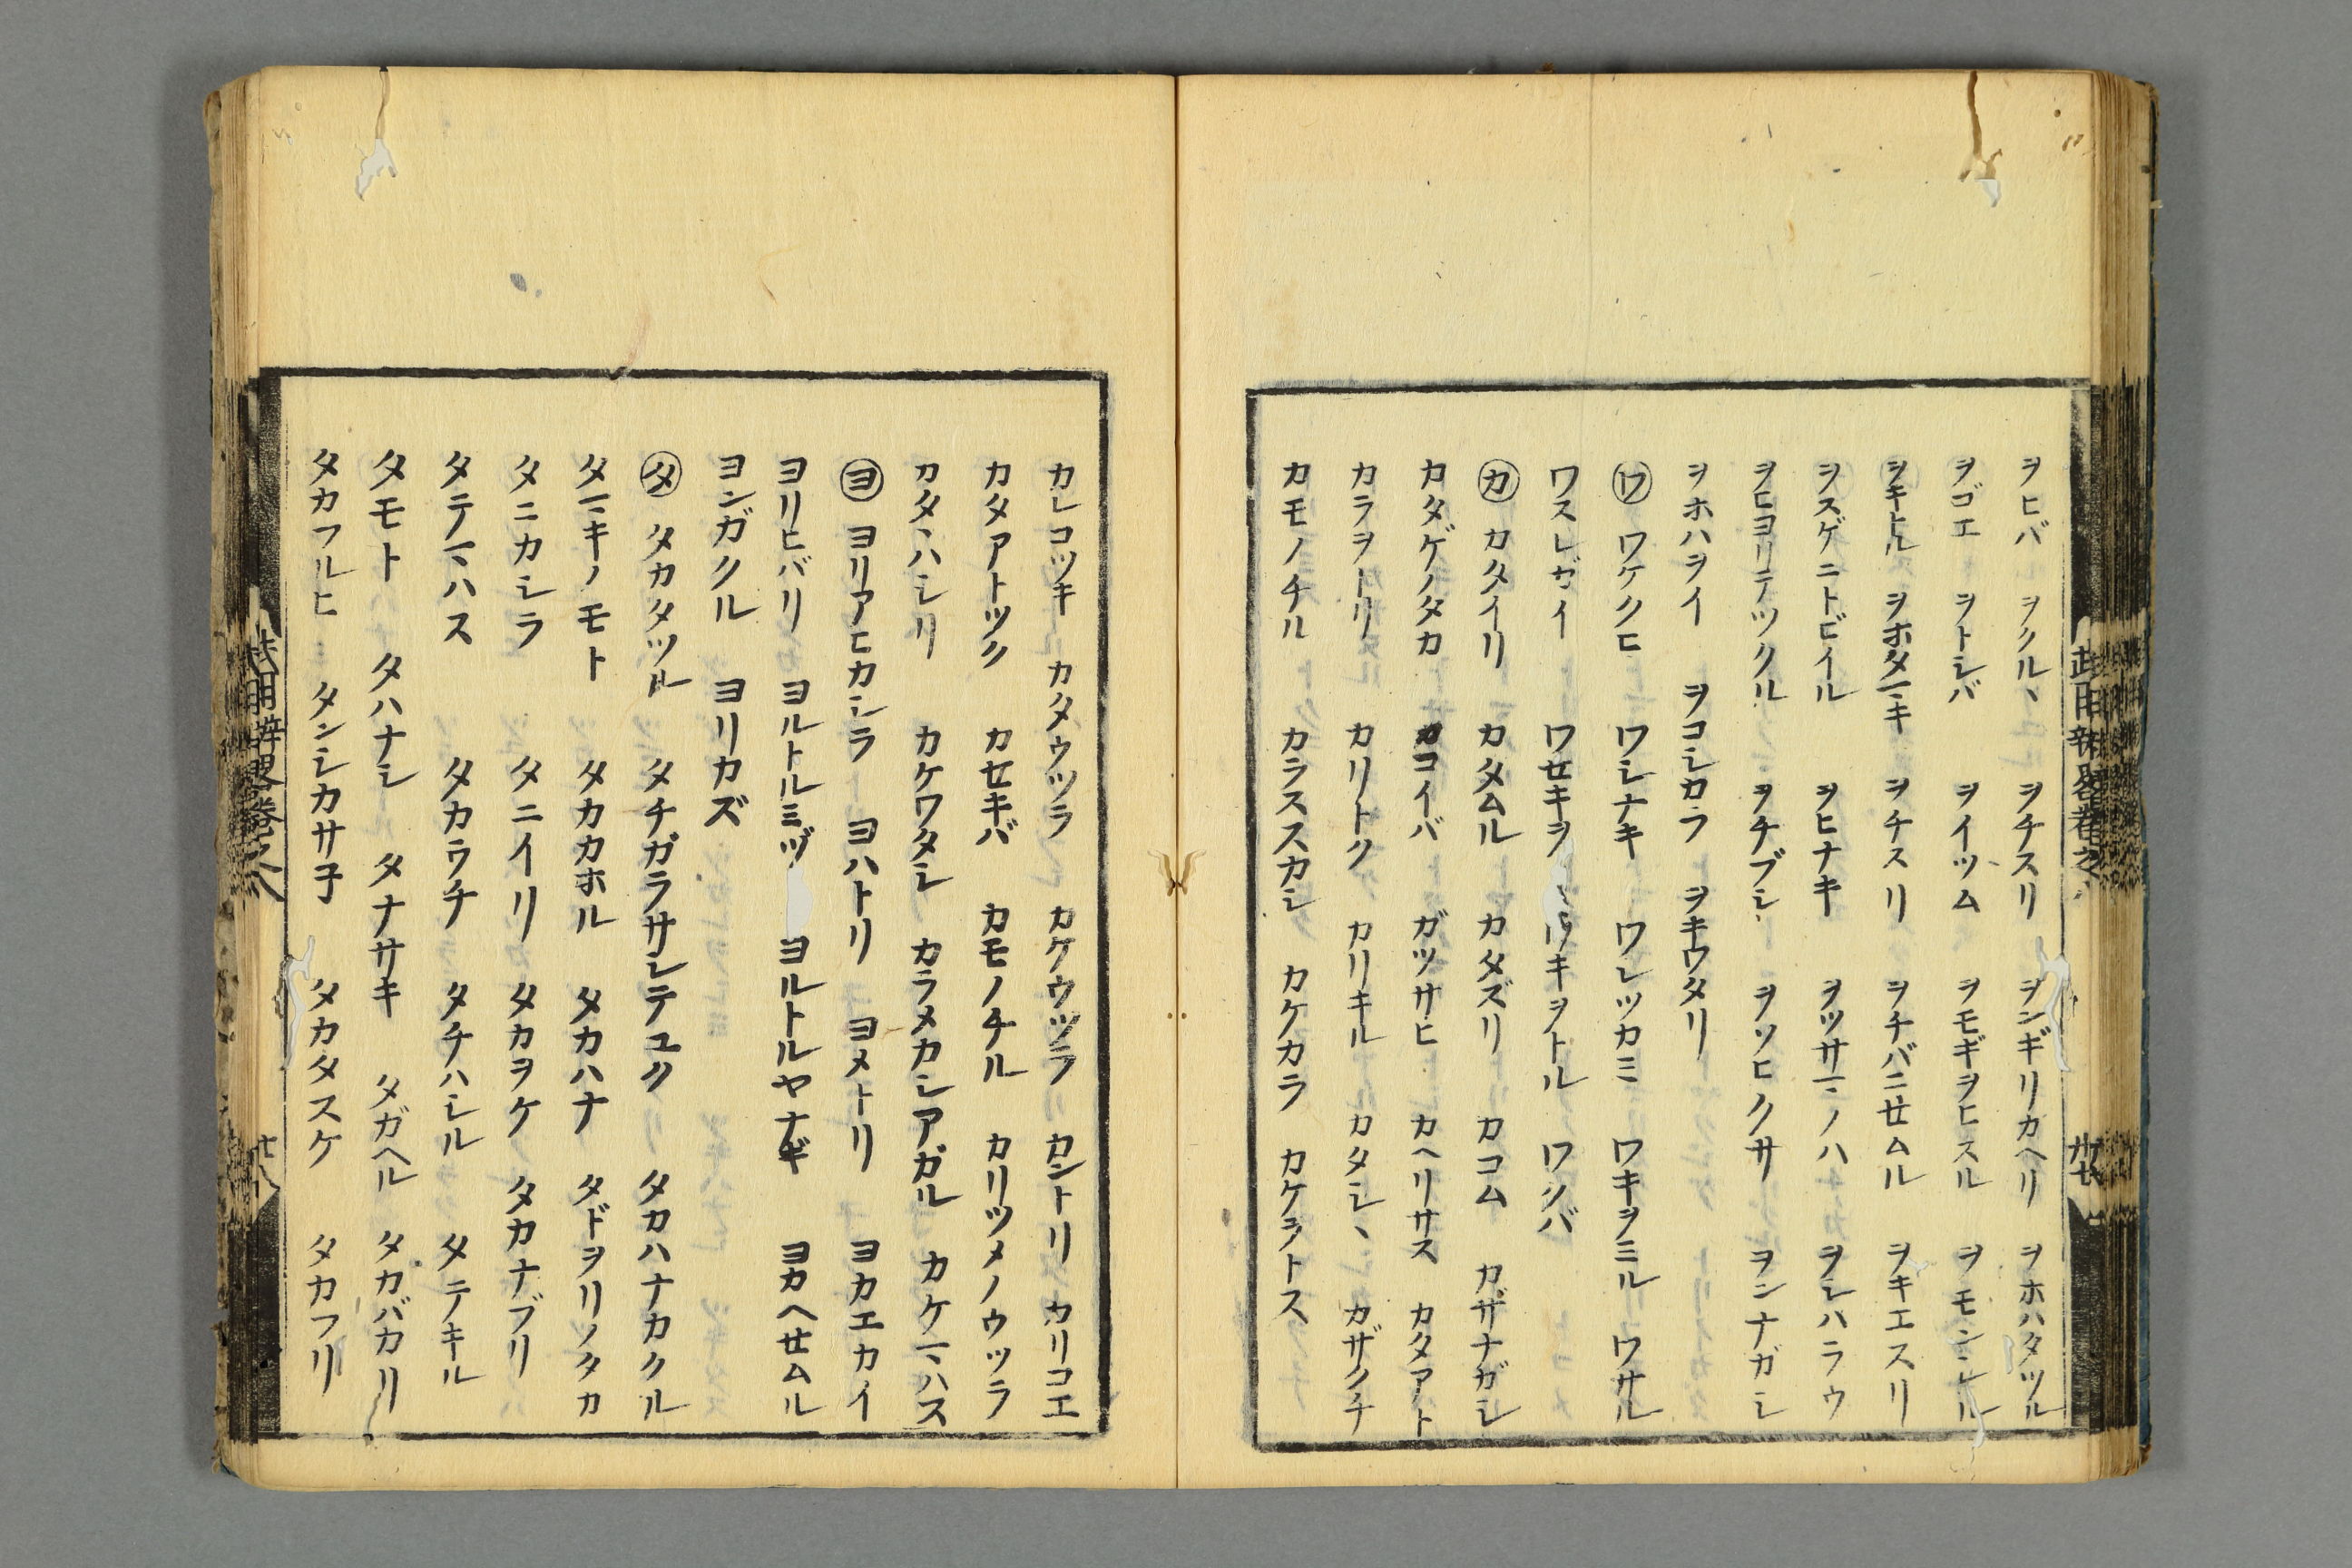 ヲヒバ ヲクルヽ ヲチスリ ヲンギリカヘリ ヲホハタツル
ヲゴエ ヲトシバ ヲイツム ヲモギヲヒスル ヲモンシル
ヲキトル ヲホタマキ ヲチスリ ヲチバニセムル ヲキエスリ
ヲスゲニトビイル ヲヒナキ ヲツサマノハ ヲシハラウ
ヲヒヨリテツクル ヲチブシ ヲツヒクサ ヲンナガシ
ヲホハヲイ ヲコシカフ ヲキウタリ
ワ ワケクヒ ワシナキ ワシツカミ ワキヲミル ワサル
ワスレガイ ワセキヲ ワキヲトル ワクバ
カ カタイリ カタムル カタズリ カコム カザナガシ
カタゲノタカ カコイバ ガツサヒ カヘリサス カタアト
カラヲトリ カリトク カリキル カタシヽ カザクチ
カモノチル カラススカシ カケカラ カケヲトス
カレコツキ カタウツラ カケウツラ カントリ カリコエ
カタアトツク カセキバ カモノチル カリツメノウツラ
カタヽハシリ カケワタシ カラメカシアガル カケマハス
ヨ ヨリアヒカシラ ヨハトリ ヨメトリ ヨカエカイ
ヨリヒバリ ヨルトルミヅ ヨルトルヤナギ ヨカヘセムル
ヨンガクル ヨリカズ
タ タカタツル タチガラサレテユク タカハナカクル
タマキノモト タカカホル タカハナ タドヲリノタカ
タニカシラ タニイリ タカヲケ タカナブリ
タテマハス タカウチ タチハシル タテキル
タモト タハナシ タナサキ タガヘル タカバカリ
タカフルヒ タンシカサ子 タカタスケ タカフリ